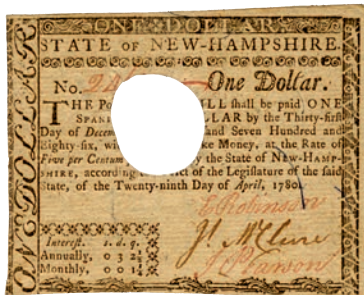 ONE DOLLAR
ONE DOLLAR
STATE OF NEW-HAMPSHIRE.
No. One Dollar.
THE Po ILL shall be paid ONE
SPAN LLAR by the Thirty-first
Day of Decem and Seven Hundred and
Eighty-six, wi ke Money, at the Rate of
Five per Centum by the State of NEW-HAMP-
SHIRE, according ct of the Legislature of the said
State, of the Twenty-ninth Day of April, 1780.
E Robinson
Interest. s. d. q.
Annually, 0 3 2
Monthly, 0 0 1
Js. McClure
J Pearson